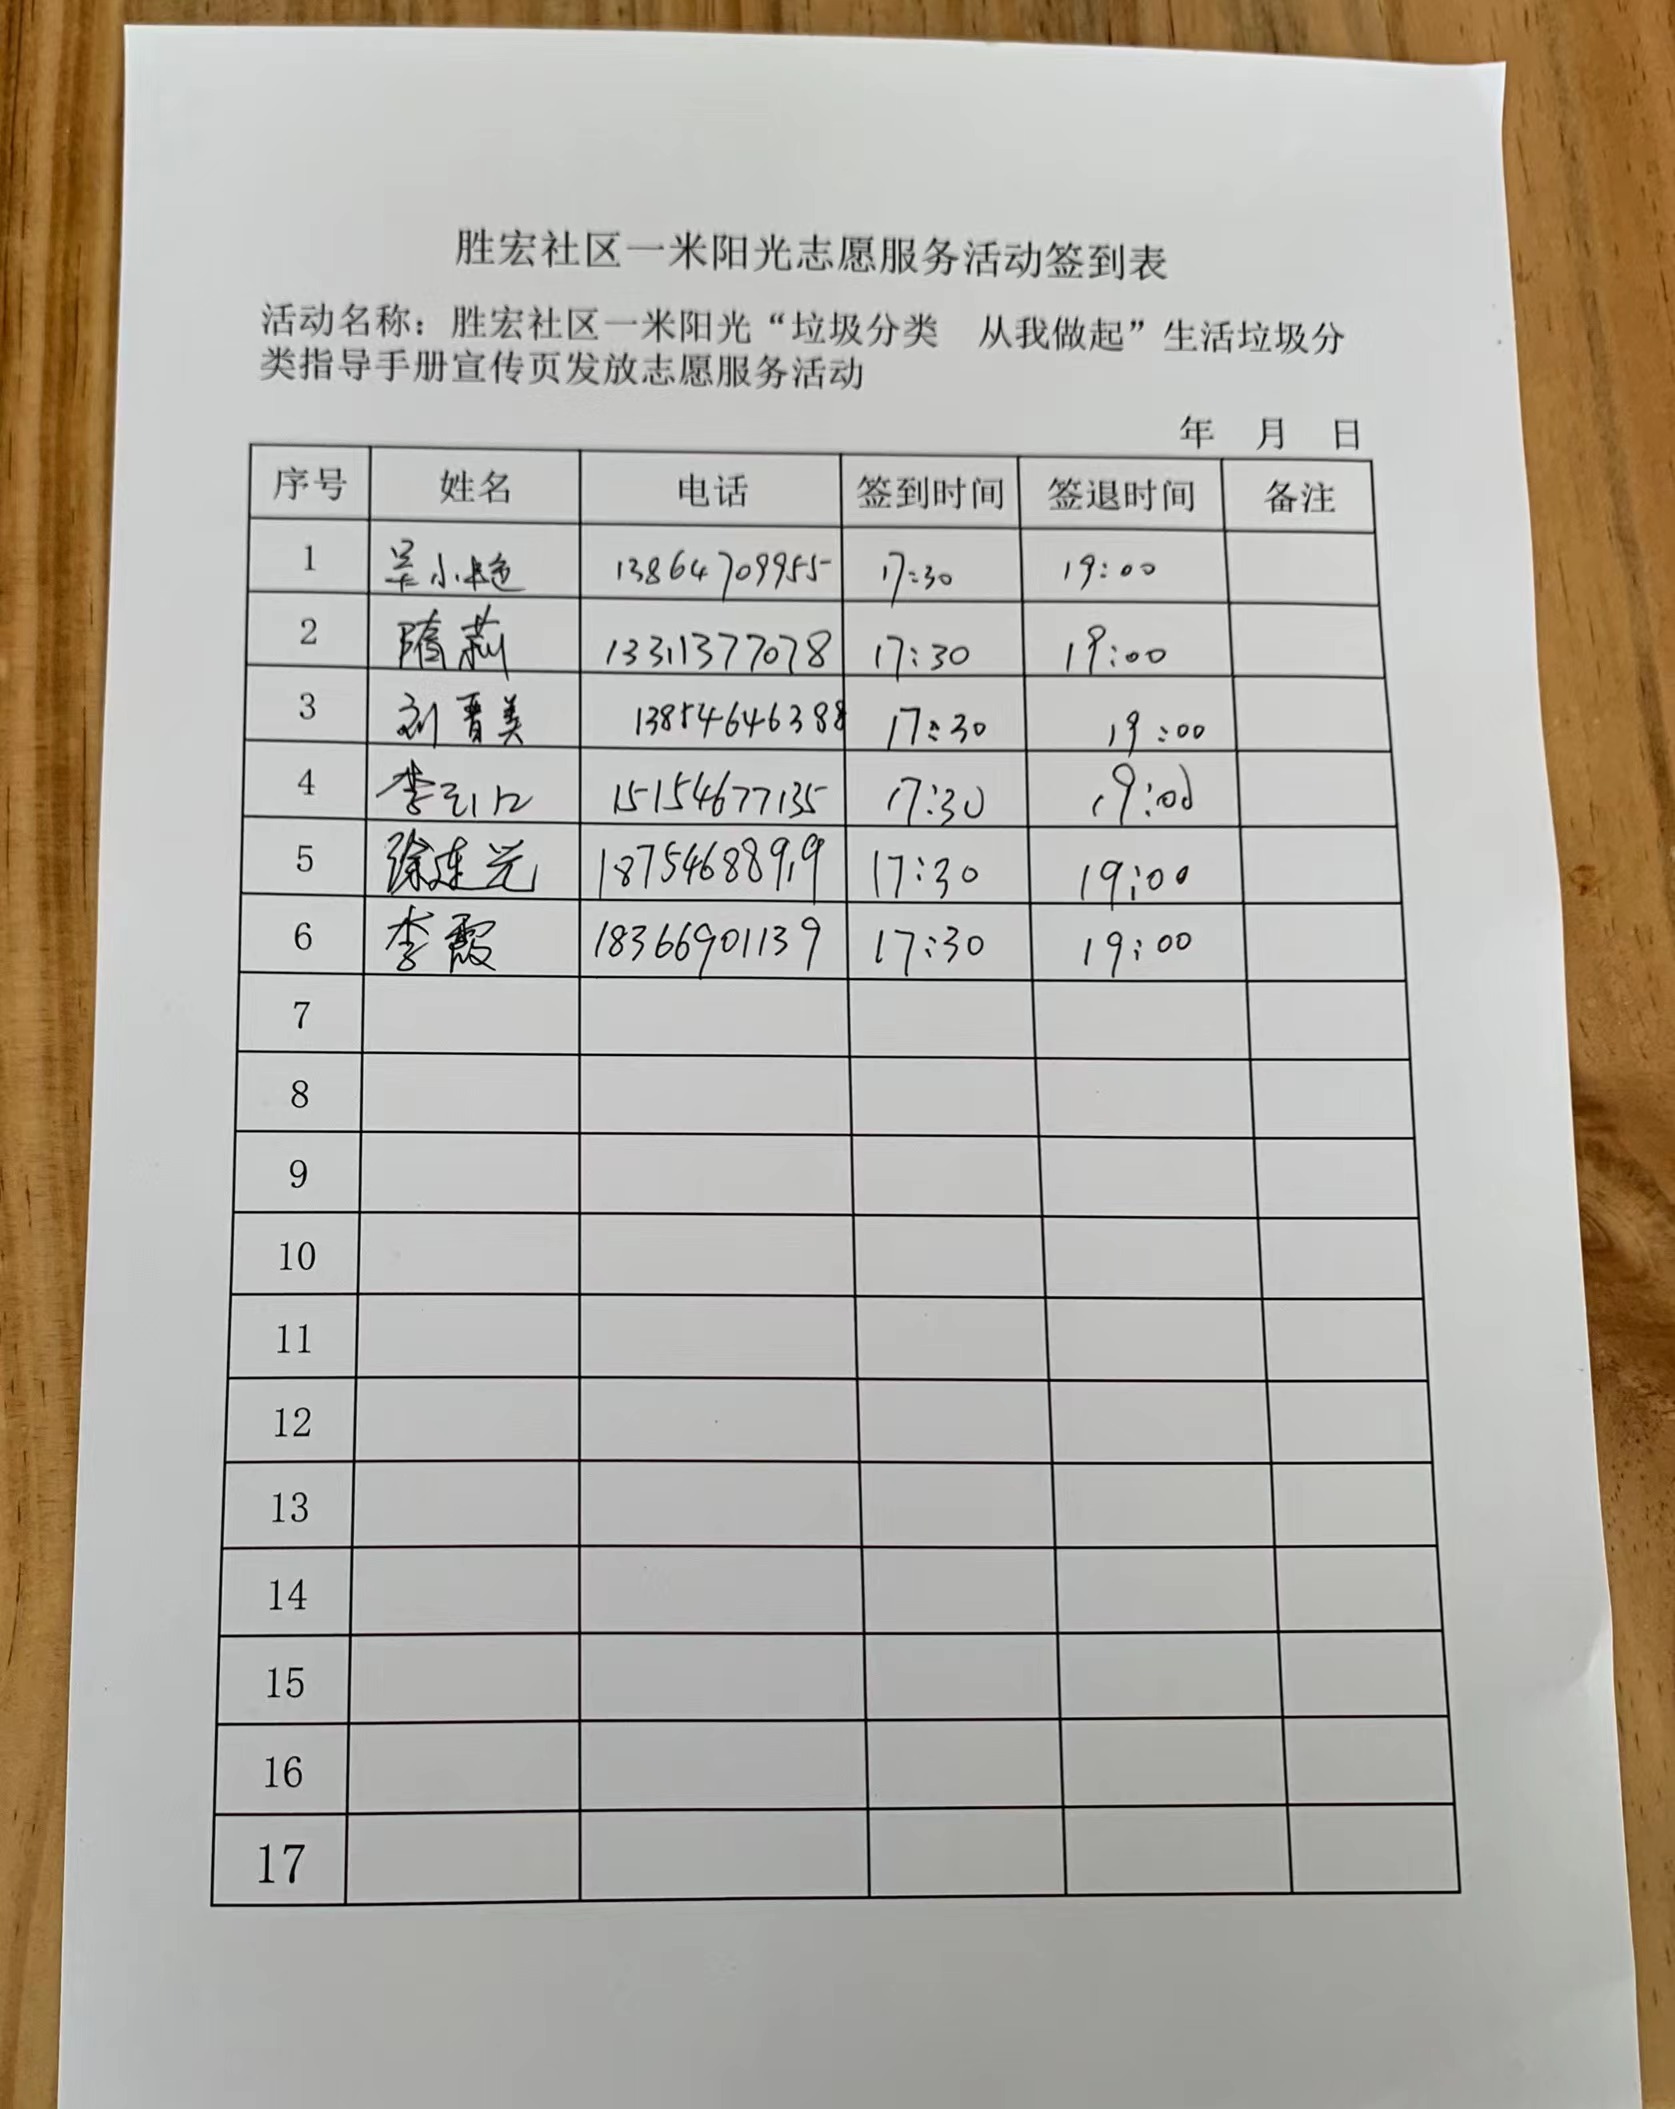 胜宏社区一米阳光志愿服务活动签到表
活动名称：胜宏社区一米阳光“垃圾分类　从我做起”生活垃圾分
类指导手册宣传页发放志愿服务活动
年　月　日
序号 姓名 电话 签到时间 签退时间 备注
1 吴小艳 13864709955 17:30 19:00
2 隋莉 13311377078 17:30 19:00
3 刘晋美 13854646388 17:30 19:00
4 李 15154677135 17:30 19:00
5 徐连光 18754688919 17:30 19:00
6 李霞 18366901139 17:30 19:00
7
8
9
10
11
12
13
14
15
16
17